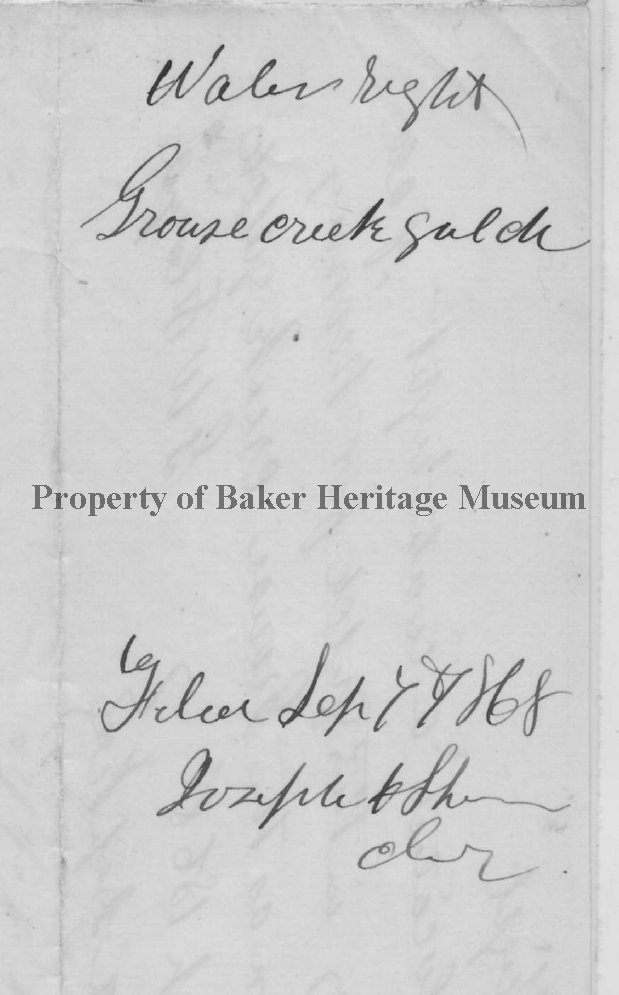 Water right
Grouse creek gulch
Property of Baker Heritage Museum
Filed Sep 7th 1868
Joseph H Shinn
Clerk